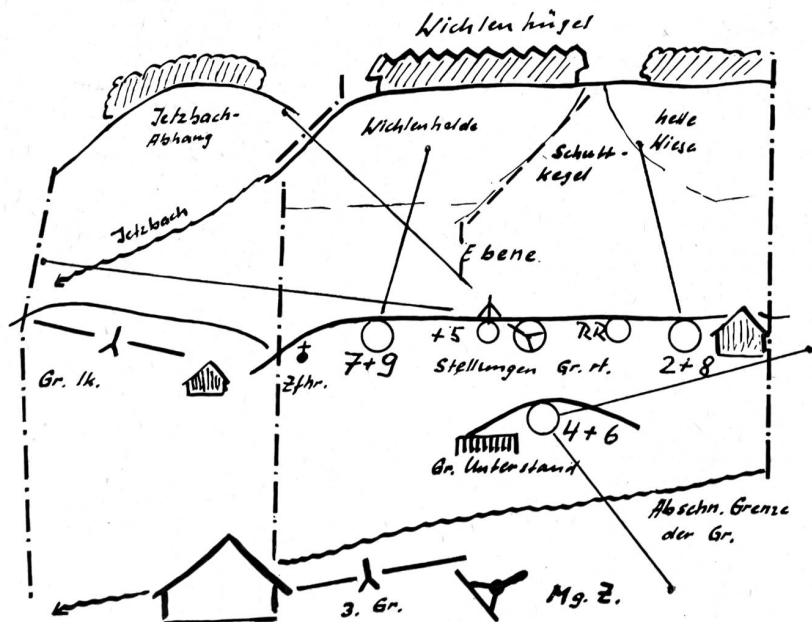 Wichlenhügel
Jetzbach-
Abhang
Wichlenhalde
helle
Wiese
Schutt-
kegel
Jetzbach
Ebene
+5
RR
Gr. lk.
Zfhr.
7+9
Stellungen Gr. rt.
2+8
4+6
Gr. Unterstand
Abschn. Grenze
der Gr.
3. Gr.
Mg. Z.